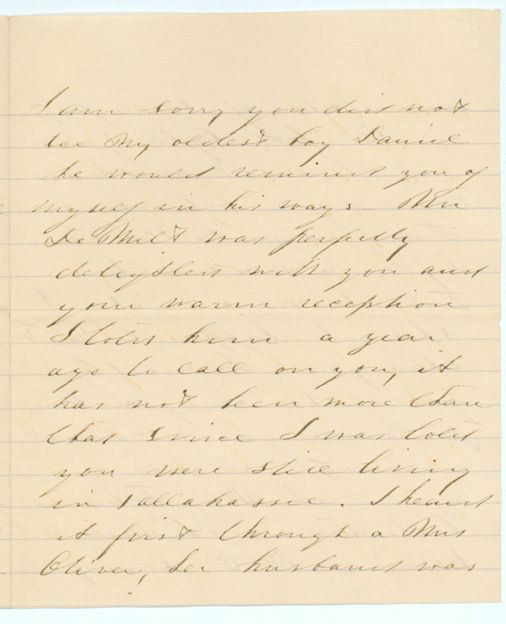 I am sorry you did not
see my oldest boy Daniel
he would remind you of
myself in his ways. Mr
De Milt was perfectly
delighted with you and
your warm reception
I told him a year
ago to call on you, it
has not been more than
that since I was told
you were still living
in Tallahassee. I heard
it first through a Mrs
Oliver, her husband was